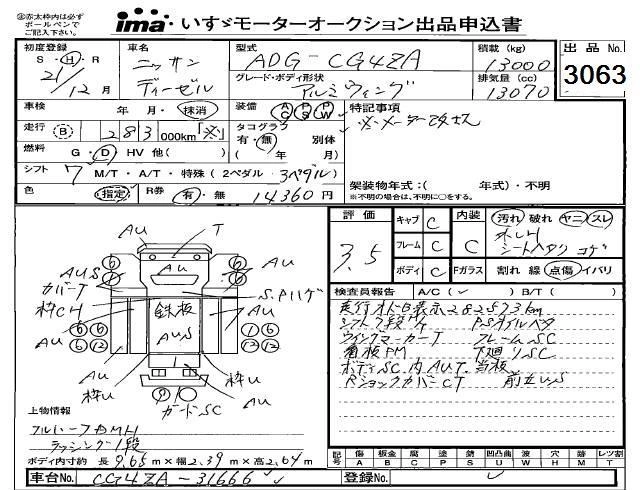 赤太枠内は必ず
ボールペンで
ご記入下さい。
ima いすゞモーターオークション出品申込書
初度登録 S・H・R 21/12月
車名 ニッサン ディーゼル
型式 ADG-CG4ZA
グレード・ボディ形状 アルミウィング
積載(kg) 13000
排気量(cc) 13070
出品No. 3063
車検 年 月・抹消
装備 AC PS PW
特記事項
※メーター改ざん
走行 B 283 000km ※
タコグラフ 有・無 別体
(年 月)
燃料 G・D・HV 他( )
シフト 7 M/T・A/T・特殊(2ペダル・3ペダル)
架装物年式:( 年式)・不明
※不明の場合は、不明に○をする。
色 指定 R券 有・無 14360円
評価 3.5
キャブ C
フレーム C
ボディ C
内装 C
Fガラス
汚れ 破れ ヤニ スレ
シートヘタリ コゲ
割れ 線 点傷 イバリ
検査員報告 A/C(✓) B/T( )
実行オドロ表示282573km
シフト7段M/T PSオイルベタ
ウイングマーカーT フレームSC
看板PM 下廻りSC
ボディSC.内AUT.当板
AU T
AU
AUS カバーT
S.Pハゲ
枠CH
鉄板
AUS
AU
枠U
枠U
AU
ガードSC
上物情報
ラッシング1段
ボディ内寸約 長9.65m×幅2.39m×高2.64m
記号 傷A 板金B 腐C 塗P 錆S 凹凸曲U 波W 穴H 跡M レツ割T
車台No. CG4ZA-31666
登録No.